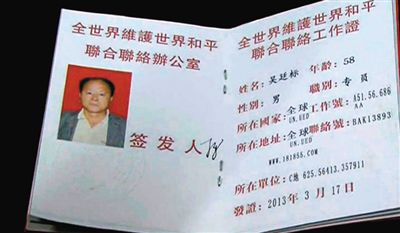 全世界維護世界和平
聯合聯絡辦公室
签发人
全世界維護世界和平
聯合聯絡工作證
姓名: 吴廷标 年龄: 58
性别: 男 職别: 专員
所在國家: 全球 工作號: A51.56.686
UN.UED AA
所在地址: 全球 聯絡號: BAK13893
UN.UED
www.181855.COM
所在單位: C地 625.56413.357911
發證: 2013年3月17日